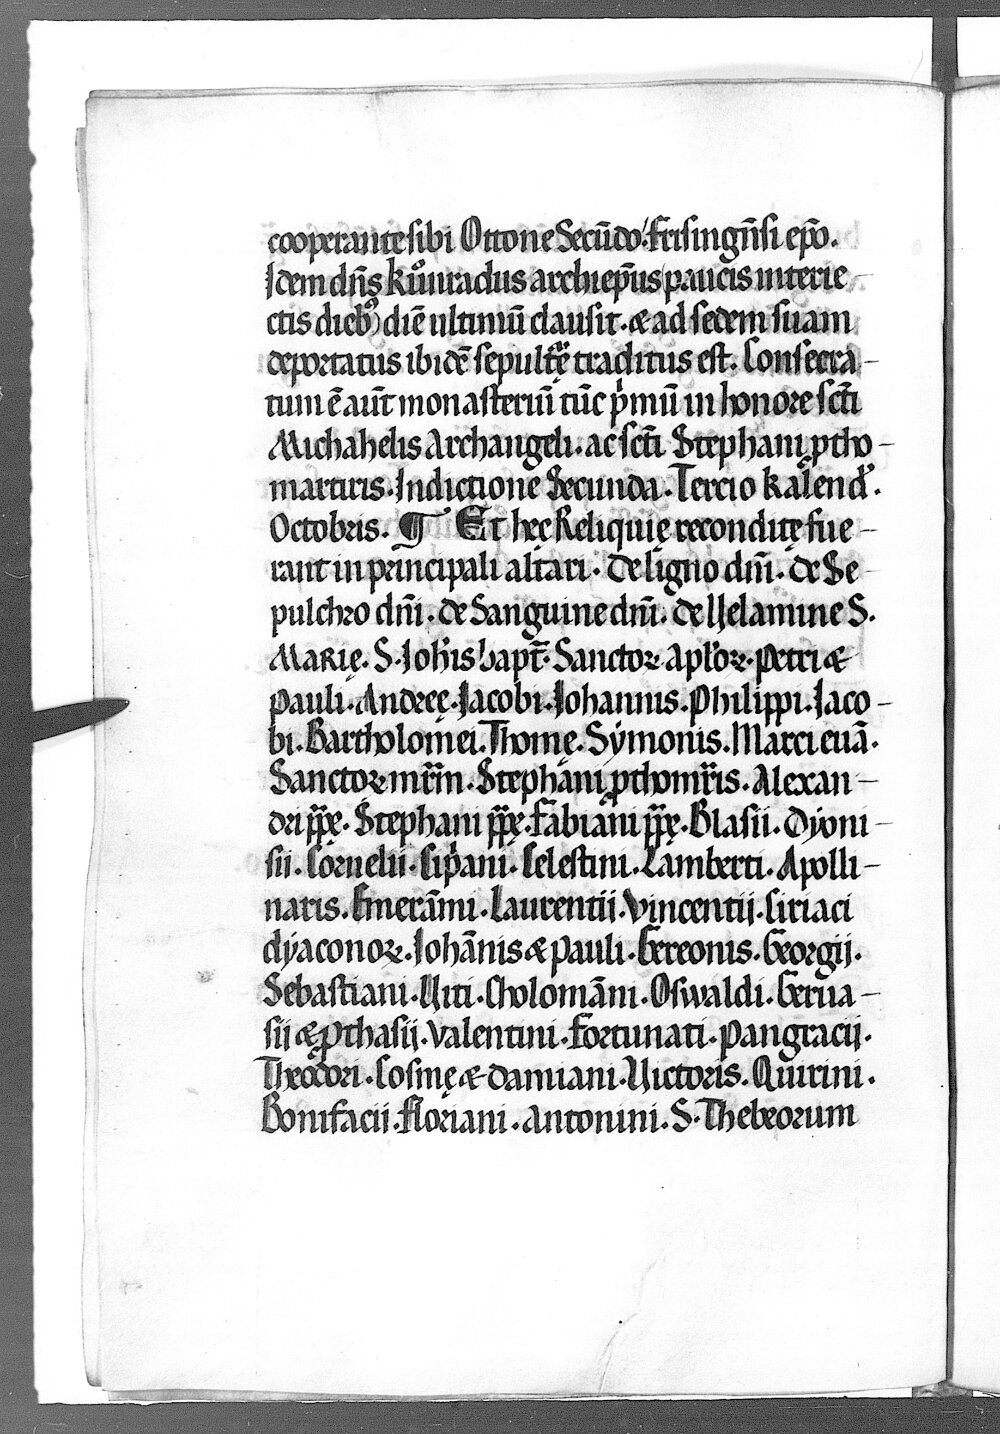 cooperante sibi Ottone Secūdo. Frisingn̄si ep̄o.
Idem dn̄s Kůnradus archiep̄us paucis interie-
ctis dieb᷒ diē ultimū clausit. & ad sedem suam
deportatus ibidē sepult᷑ę traditus est. Consecra-
tum ē aūt monasteriū tūc pͥmū in honore sc̄ti
Michahelis Archangeli. ac sc̄ti Stephani ꝓtho-
martiris. Indictione Secunda. Tercio kalend᷑.
Octobris. ¶ Et hęc Reliquię recondite̜ fue-
rant in principali altari. De ligno dn̄i. de Se-
pulchro dn̄i. de Sanguine dn̄i. de Uelamine S.
Marię. S. Ioh̄is bapt̄. Sanctoꝝ Apl̄oꝝ. Petri &
Pauli. Andreę. Jacobi. Johannis. Philippi. Jaco-
bi. Bartholomei. Thomę. Sẏmonis. Marci euā.
Sanctoꝝ mr̄m. Stephani ꝓthomr̄is. Alexan-
dri ꝑꝑę. Stephani ꝑꝑę. Fabiani ꝑꝑę. Blasii. Dyoni-
sii. Cornelii. Cipͥani. Celestini. Lamberti. Apolli-
naris. Emerām̄i. Laurentii. Vincentii. Ciriaci
dyaconoꝝ. Johānis & Pauli. Gereonis. Georgij.
Sebastiani. Uiti. Cholomāni. Oswaldi. Gerua-
sii & ꝓthasii. Valentini. Fortunati. Pangracij.
Theodori. Cosmę & Damiani. Uictoris. Quirini.
Bonifacii. Floriani. Antonini. S. Thebeorum